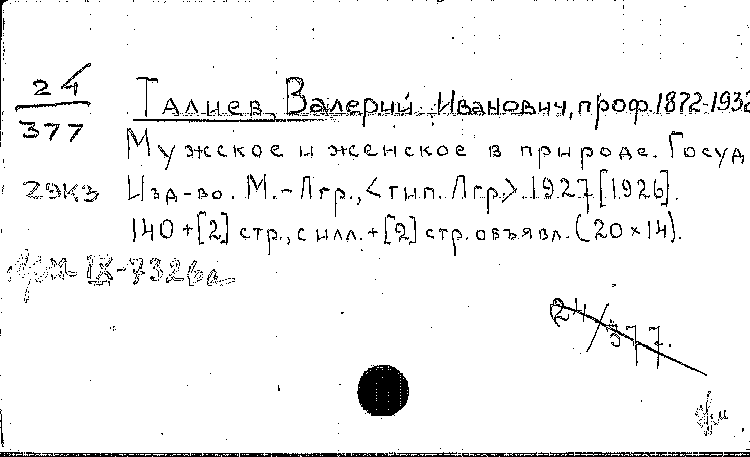 24
377
2ЭКЗ
Талиев, Валерий Иванович, проф. 1872-1932
Мужское и женское в природе. Госуд
Изд-во. М.-Лгр., <тип. Лгр>. 1927 [1926].
140 + [2] стр., с илл. + [2] стр. объявл. (20×14).
IX-7326а
24/377.